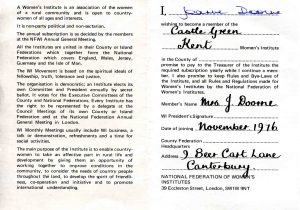 A Women's Institute is an association of the women of a rural community and is open to country-women of all ages and interests.
It is non-party political and non-sectarian.
The annual subscription is decided by the members at the NFWI Annual General Meeting.
All the Institutes are united in their County or Island Federations which together form the National Federation which covers England, Wales, Jersey, Guernsey and the Isle of Man.
The WI Movement is based on the spiritual ideals of fellowship, truth, tolerance and justice.
The organisation is democratic. Each Institute elects its own Committee and President annually by secret ballot. It votes for the Executive Committees of the County and National Federations. Every Institute has the right to be represented by a delegate at the Council Meetings of its own County or Island Federation and at the National Federation Annual General Meeting in London.
WI Monthly Meetings usually include WI business, a talk or demonstration, refreshments and a time for social activities.
The main purpose of the Institute is to enable country-women to take an effective part in rural life and development by giving them an opportunity of working together to improve conditions in the community, to consider the needs of country people throughout the land, to develop the spirit of friendliness, co-operation and initiative and to promote international understanding.
I,
wishing to become a member of the
Castle Green
Kent Women's Institute
in the County of
promise to pay to the Treasurer of the Institute the required subscription yearly while I remain a member. I also promise to keep Rules and Bye-Laws of the Institute, and all Rules and Regulations made for Women's Institutes by the National Federation of Women's Institutes.
Member's Name Mrs. J. Doorne
WI President's Signature
Date of joining November 1976
County Federation
Headquarters
Address 9 Beer Cart Lane
Canterbury
NATIONAL FEDERATION OF WOMEN'S
INSTITUTES
39 Eccleston Street, London, SW1W 9NT